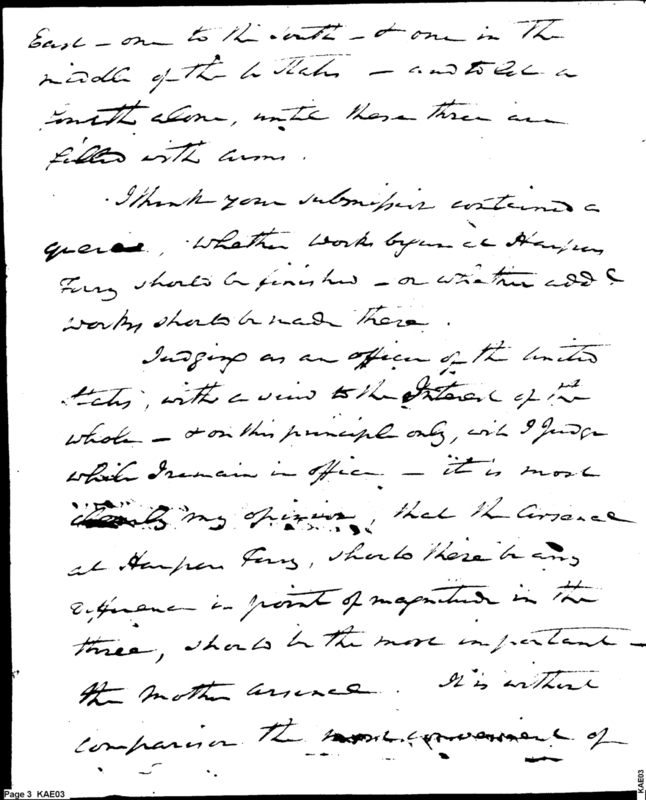 East – one to the South – & one in the
middle of the U States – and to let a
fourth alone, until these three are
filled with arms.
I think your submission contained a
, whether works begun at Harpers
Ferry should be finished – or whether add'l
works should be made there.
Judging as an officer of the United
States, with a view to the Interest of the
whole – & on this principle only, will I judge
while I remain in office – it is most
clearly my opinion, that the Arsenal
at Harpers Ferry, should there be any
difference in point of magnitude in the
three, should be the most important –
the Mother Arsenal. It is without
comparison the most convenient of
Page 3 KAE03
KAE03